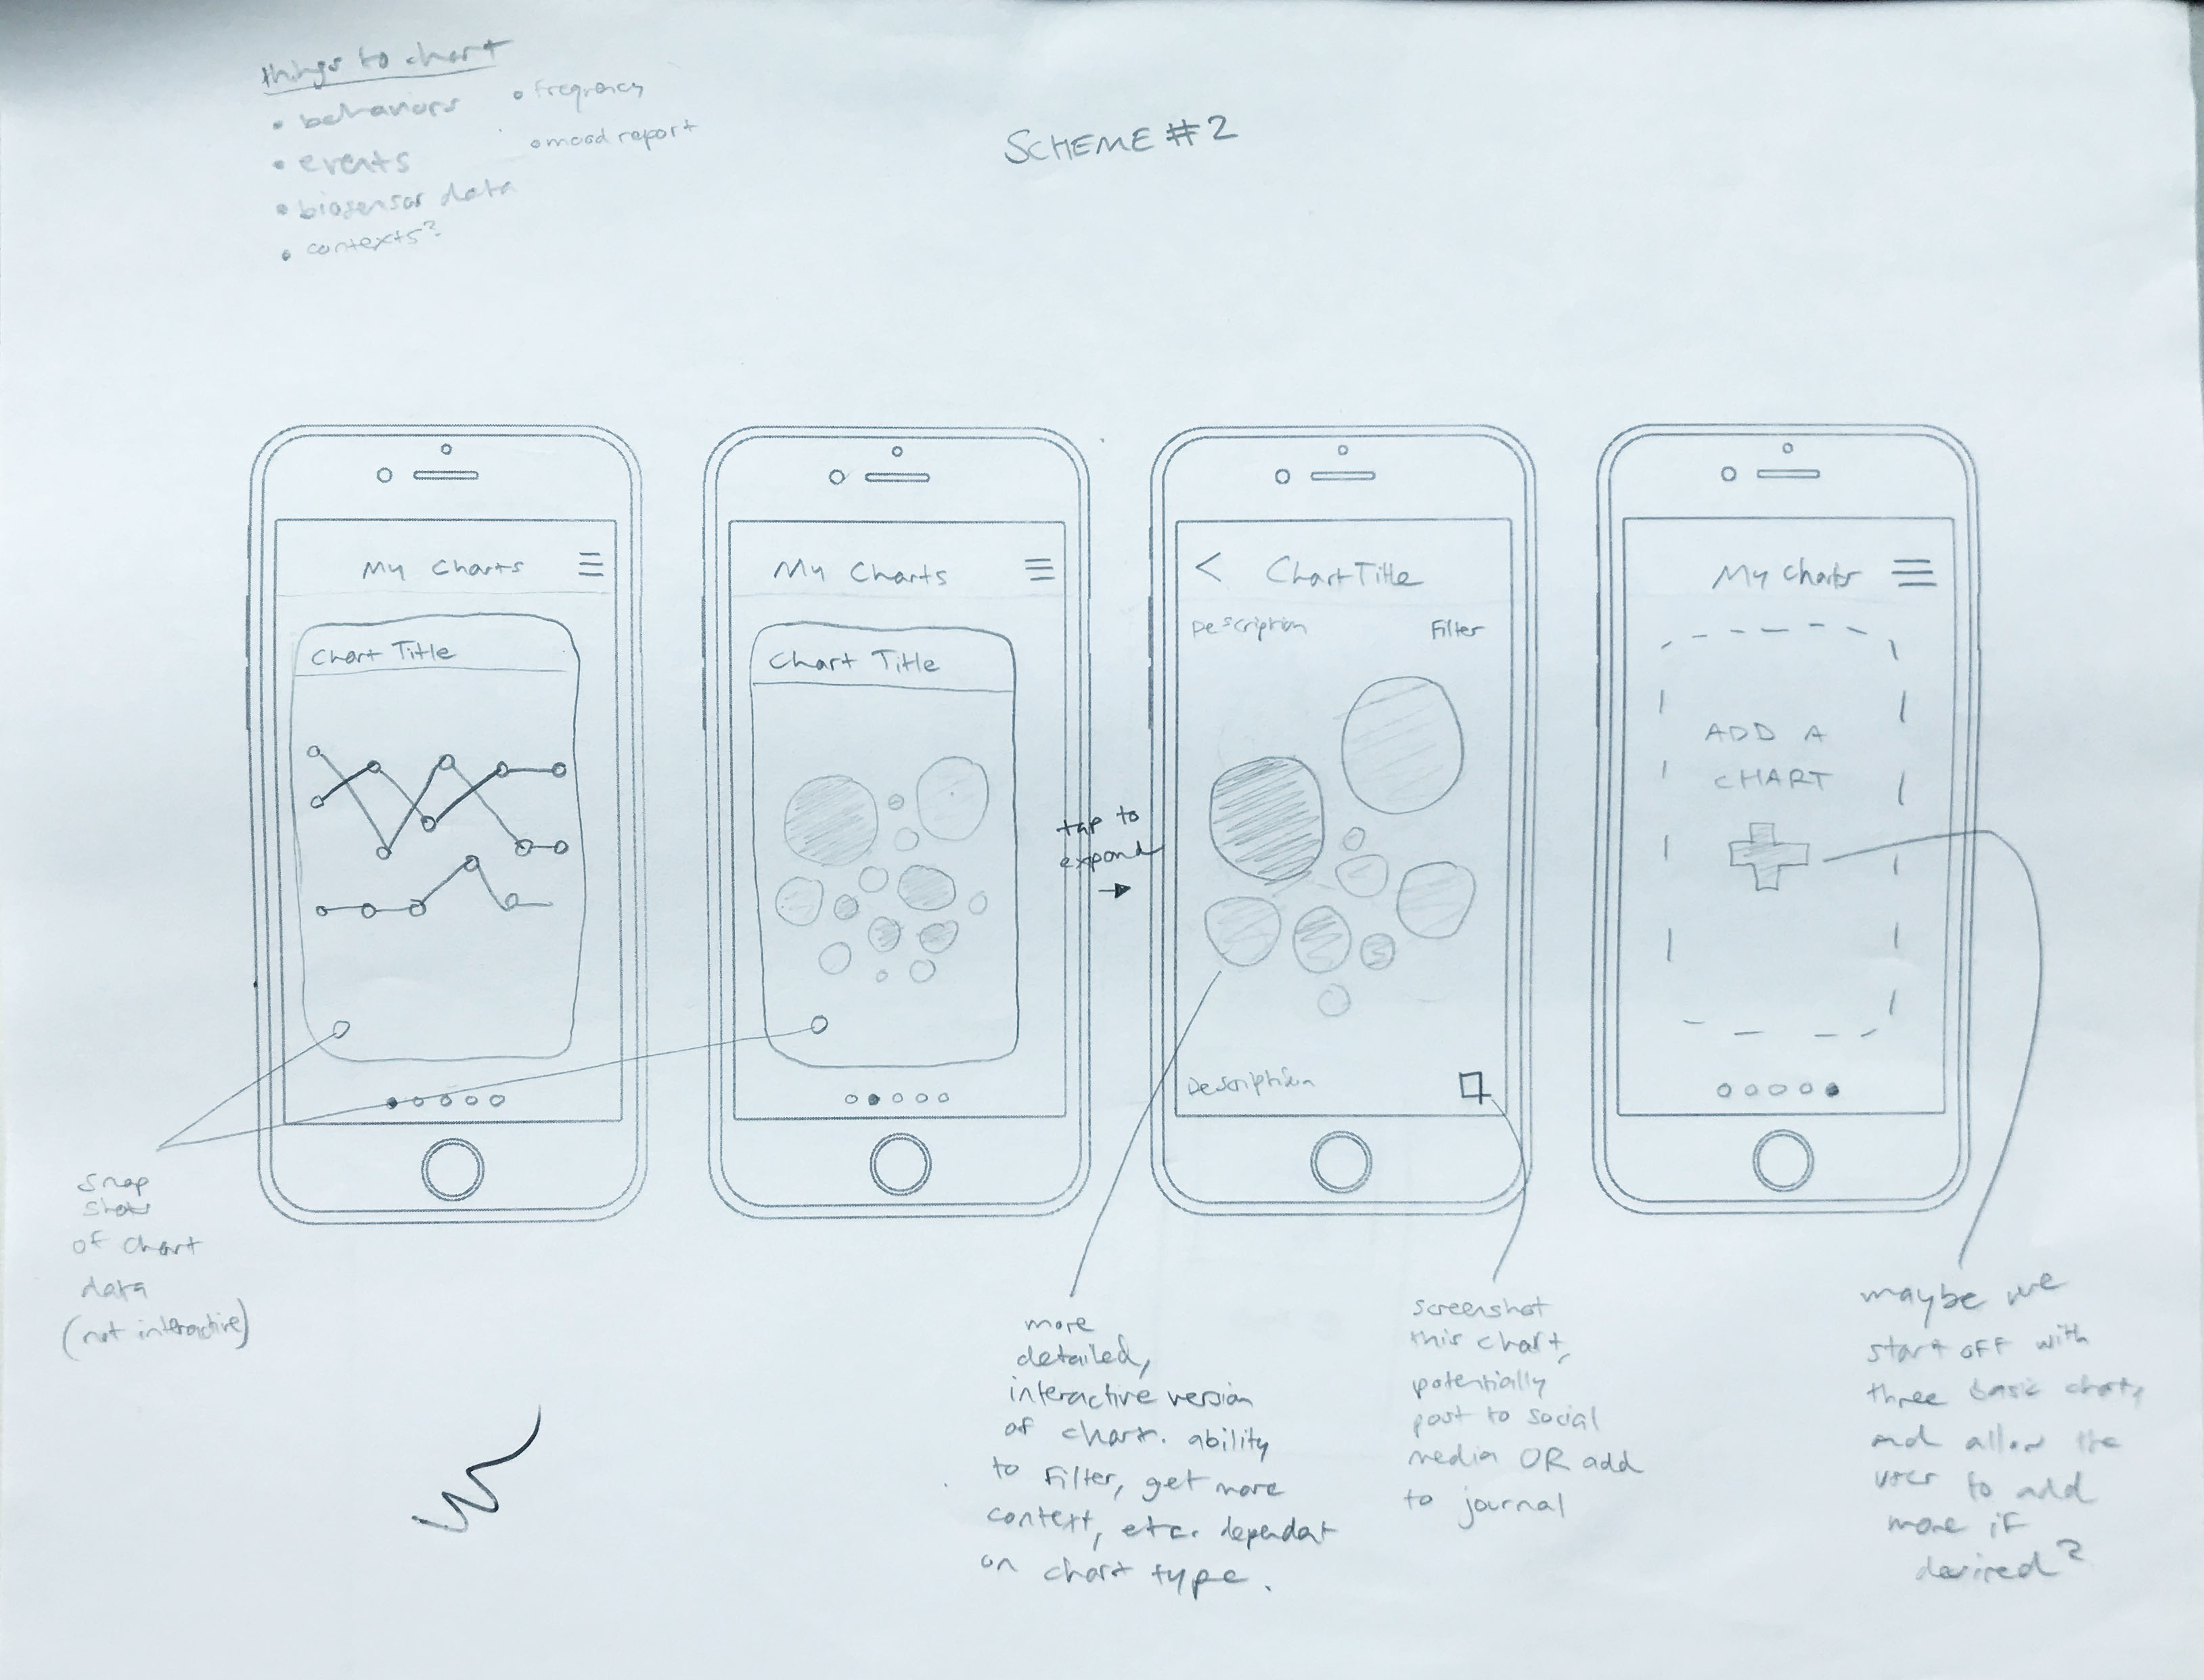 things to chart
• behaviors
• events
• biosensor data
• contexts?
• frequency
• mood report
SCHEME #2
My Charts
Chart Title
My Charts
Chart Title
tap to
expand
→
< Chart Title
Description
Filter
Description
My Charts
ADD A
CHART
snap
shots
of chart
data
(not interactive)
more
detailed,
interactive version
of chart. ability
to filter, get more
context, etc. dependat
on chart type.
screenshot
this chart,
potentially
post to social
media OR add
to journal
maybe we
start off with
three basic charts,
and allow the
user to add
more if
desired?